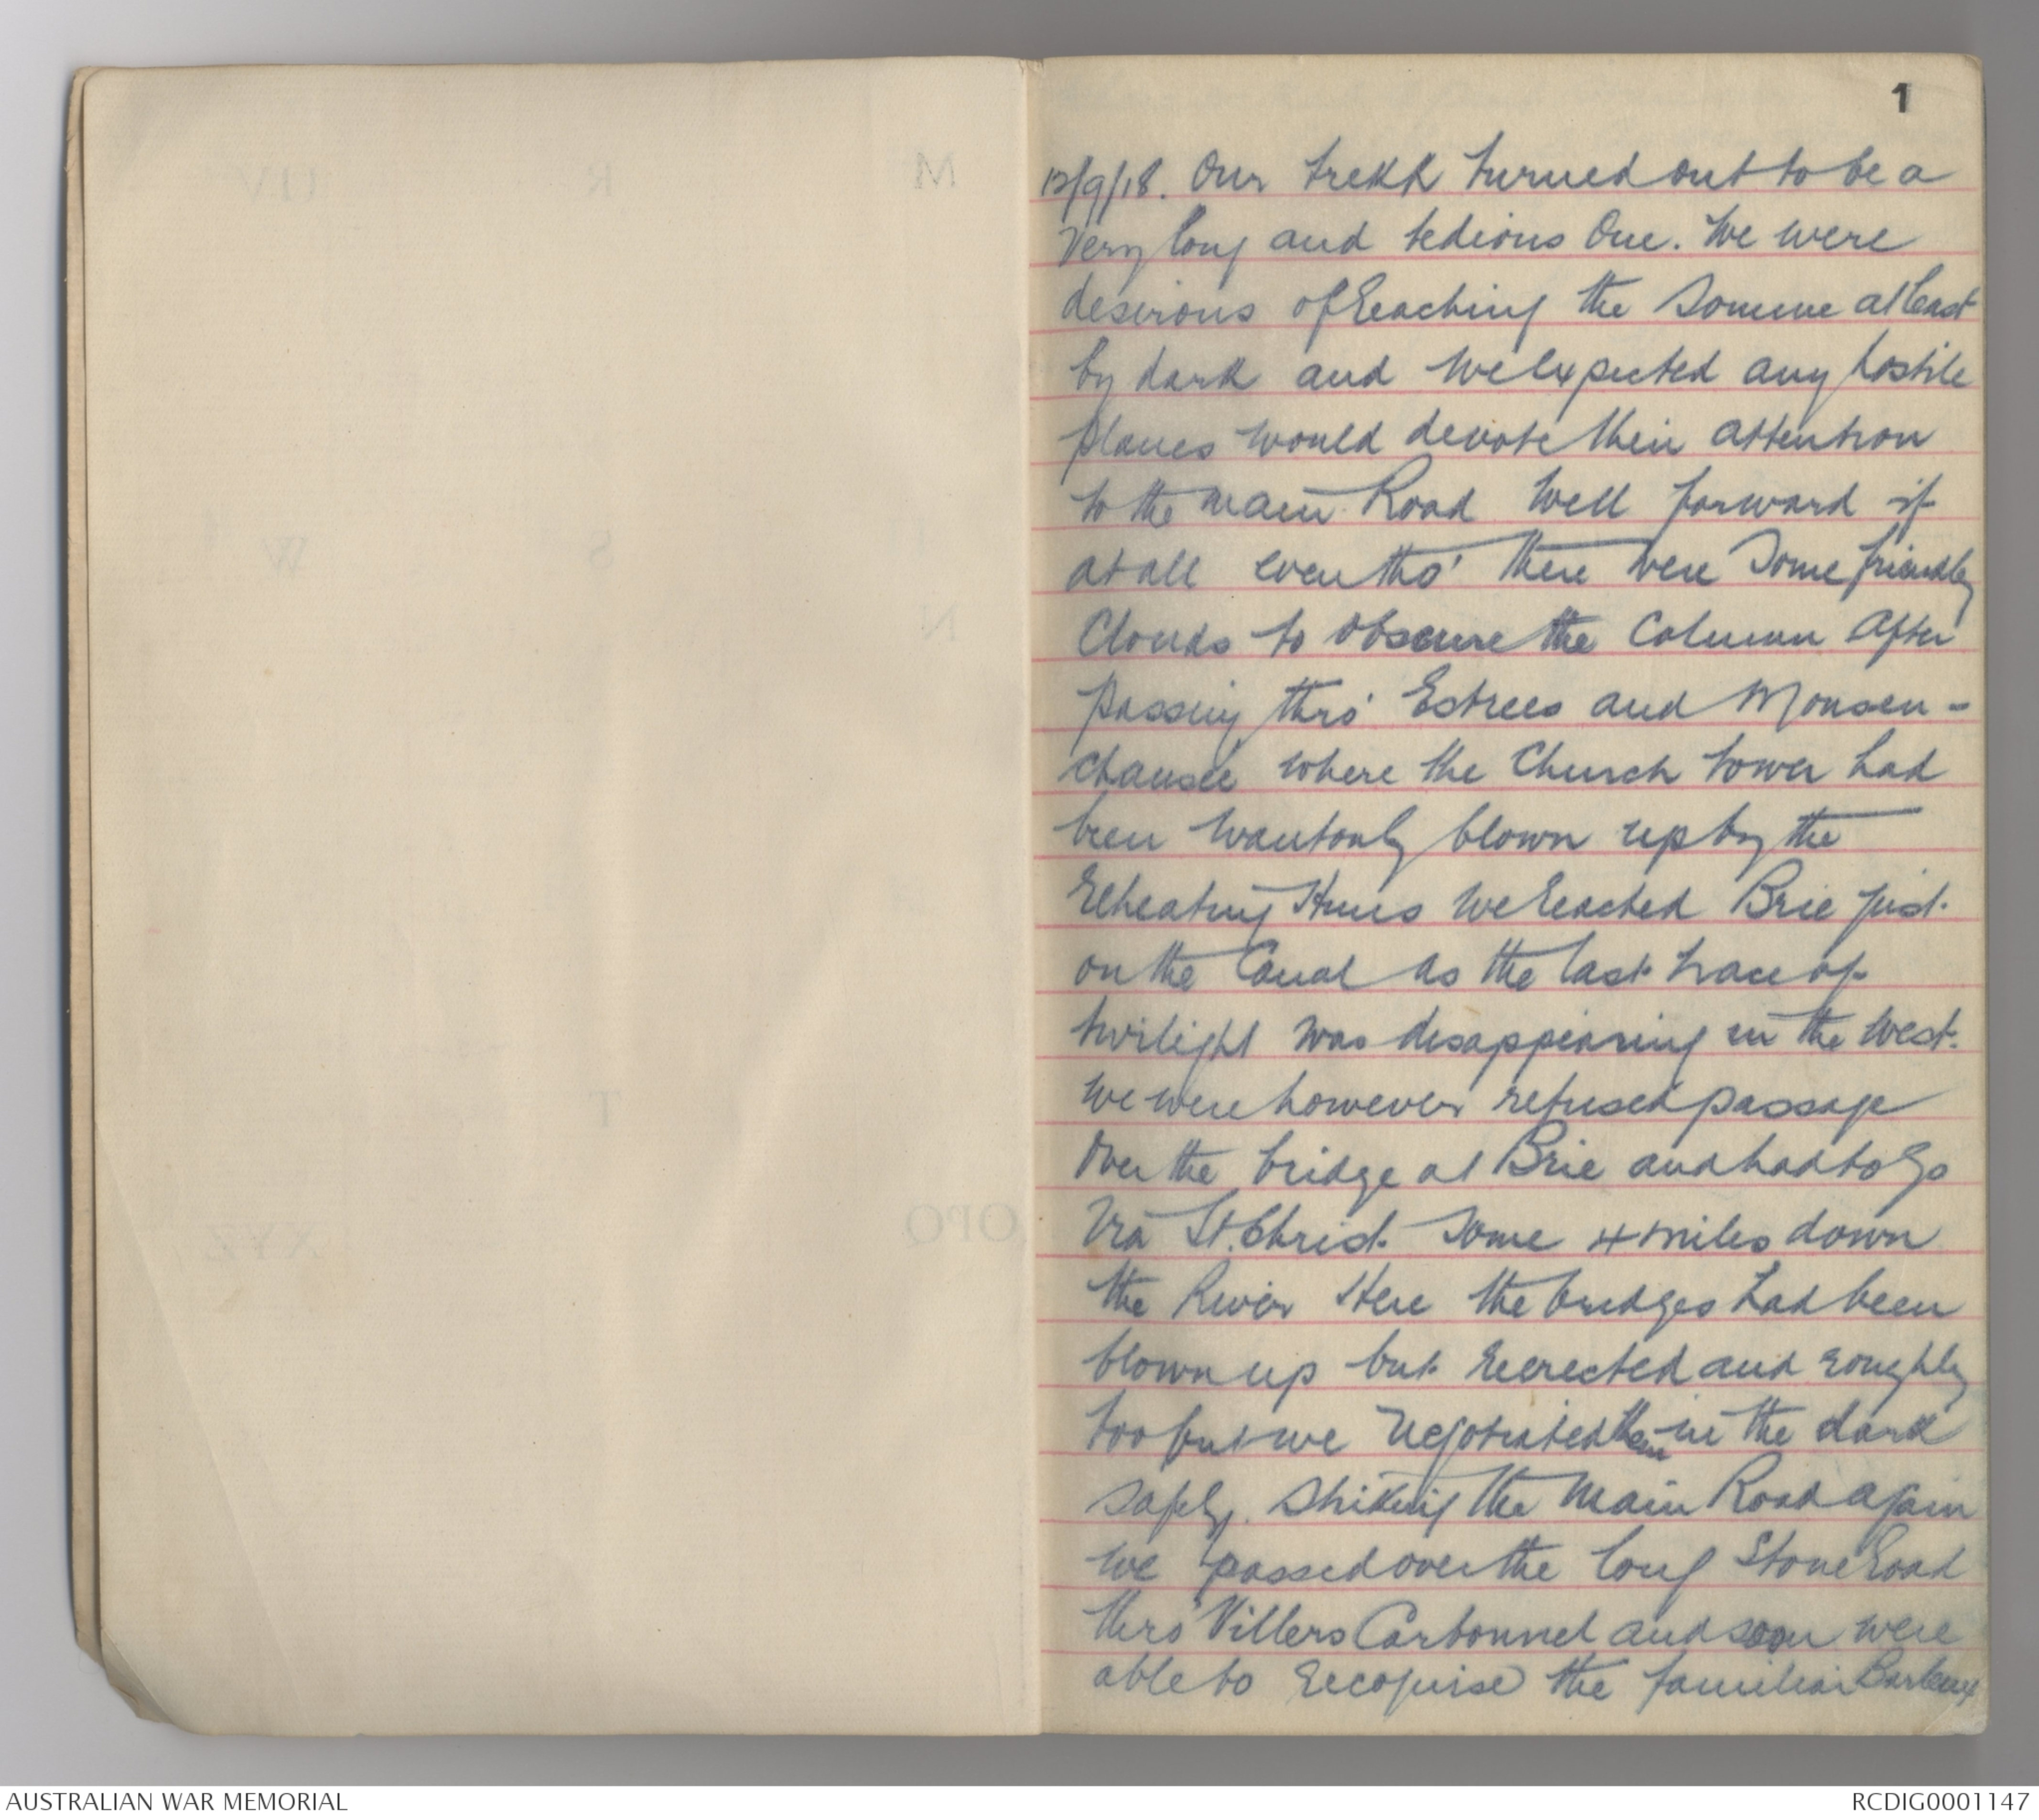 1
12/9/18. Our trekk turned out to be a
very long and tedious One. We were
desirous of reaching the Somme at least
by dark and we expected any hostile
planes would devote their attention
to the main Road well forward if
at all even tho' there were some friendly
Clouds to obscure the Column After
passing thro' Estrees and Monsen-
chausee where the Church tower had
been wantonly blown up by the
Retreating Huns we reached Brie just
on the Canal as the last trace of
twilight was disappearing in the West.
We were however refused passage
over the bridge at Brie and had to go
via St. Christ. Some 4 miles down
the River Here the bridges had been
blown up but reerected and roughly
too but we negotiated them in the dark
safely. Striking the Main Road again
we passed over the long Stone Road
thro' Villers Carbonnel and soon were
able to recognise the familiar Barleux
AUSTRALIAN WAR MEMORIAL
RCDIG0001147